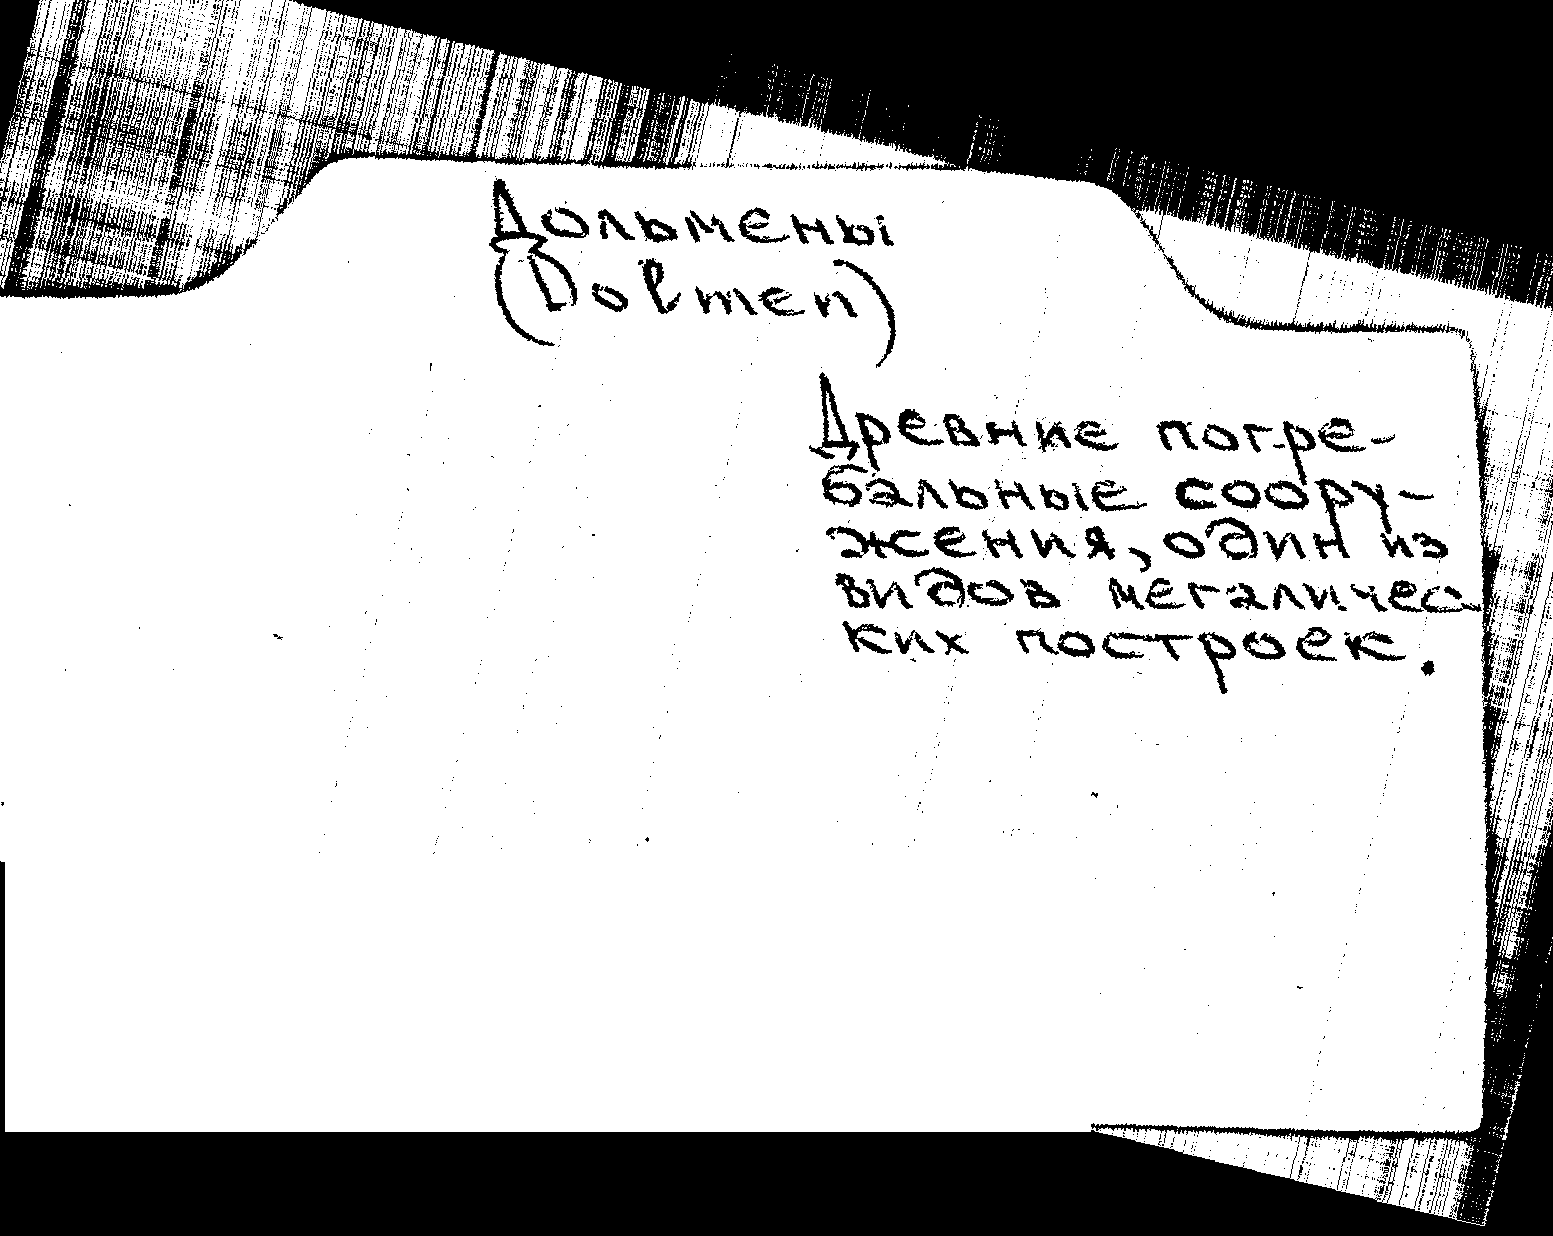 Дольмены
(Dolmen)
Древние погре-
бальные соору-
жения, один из
видов мегаличес-
ких построек.